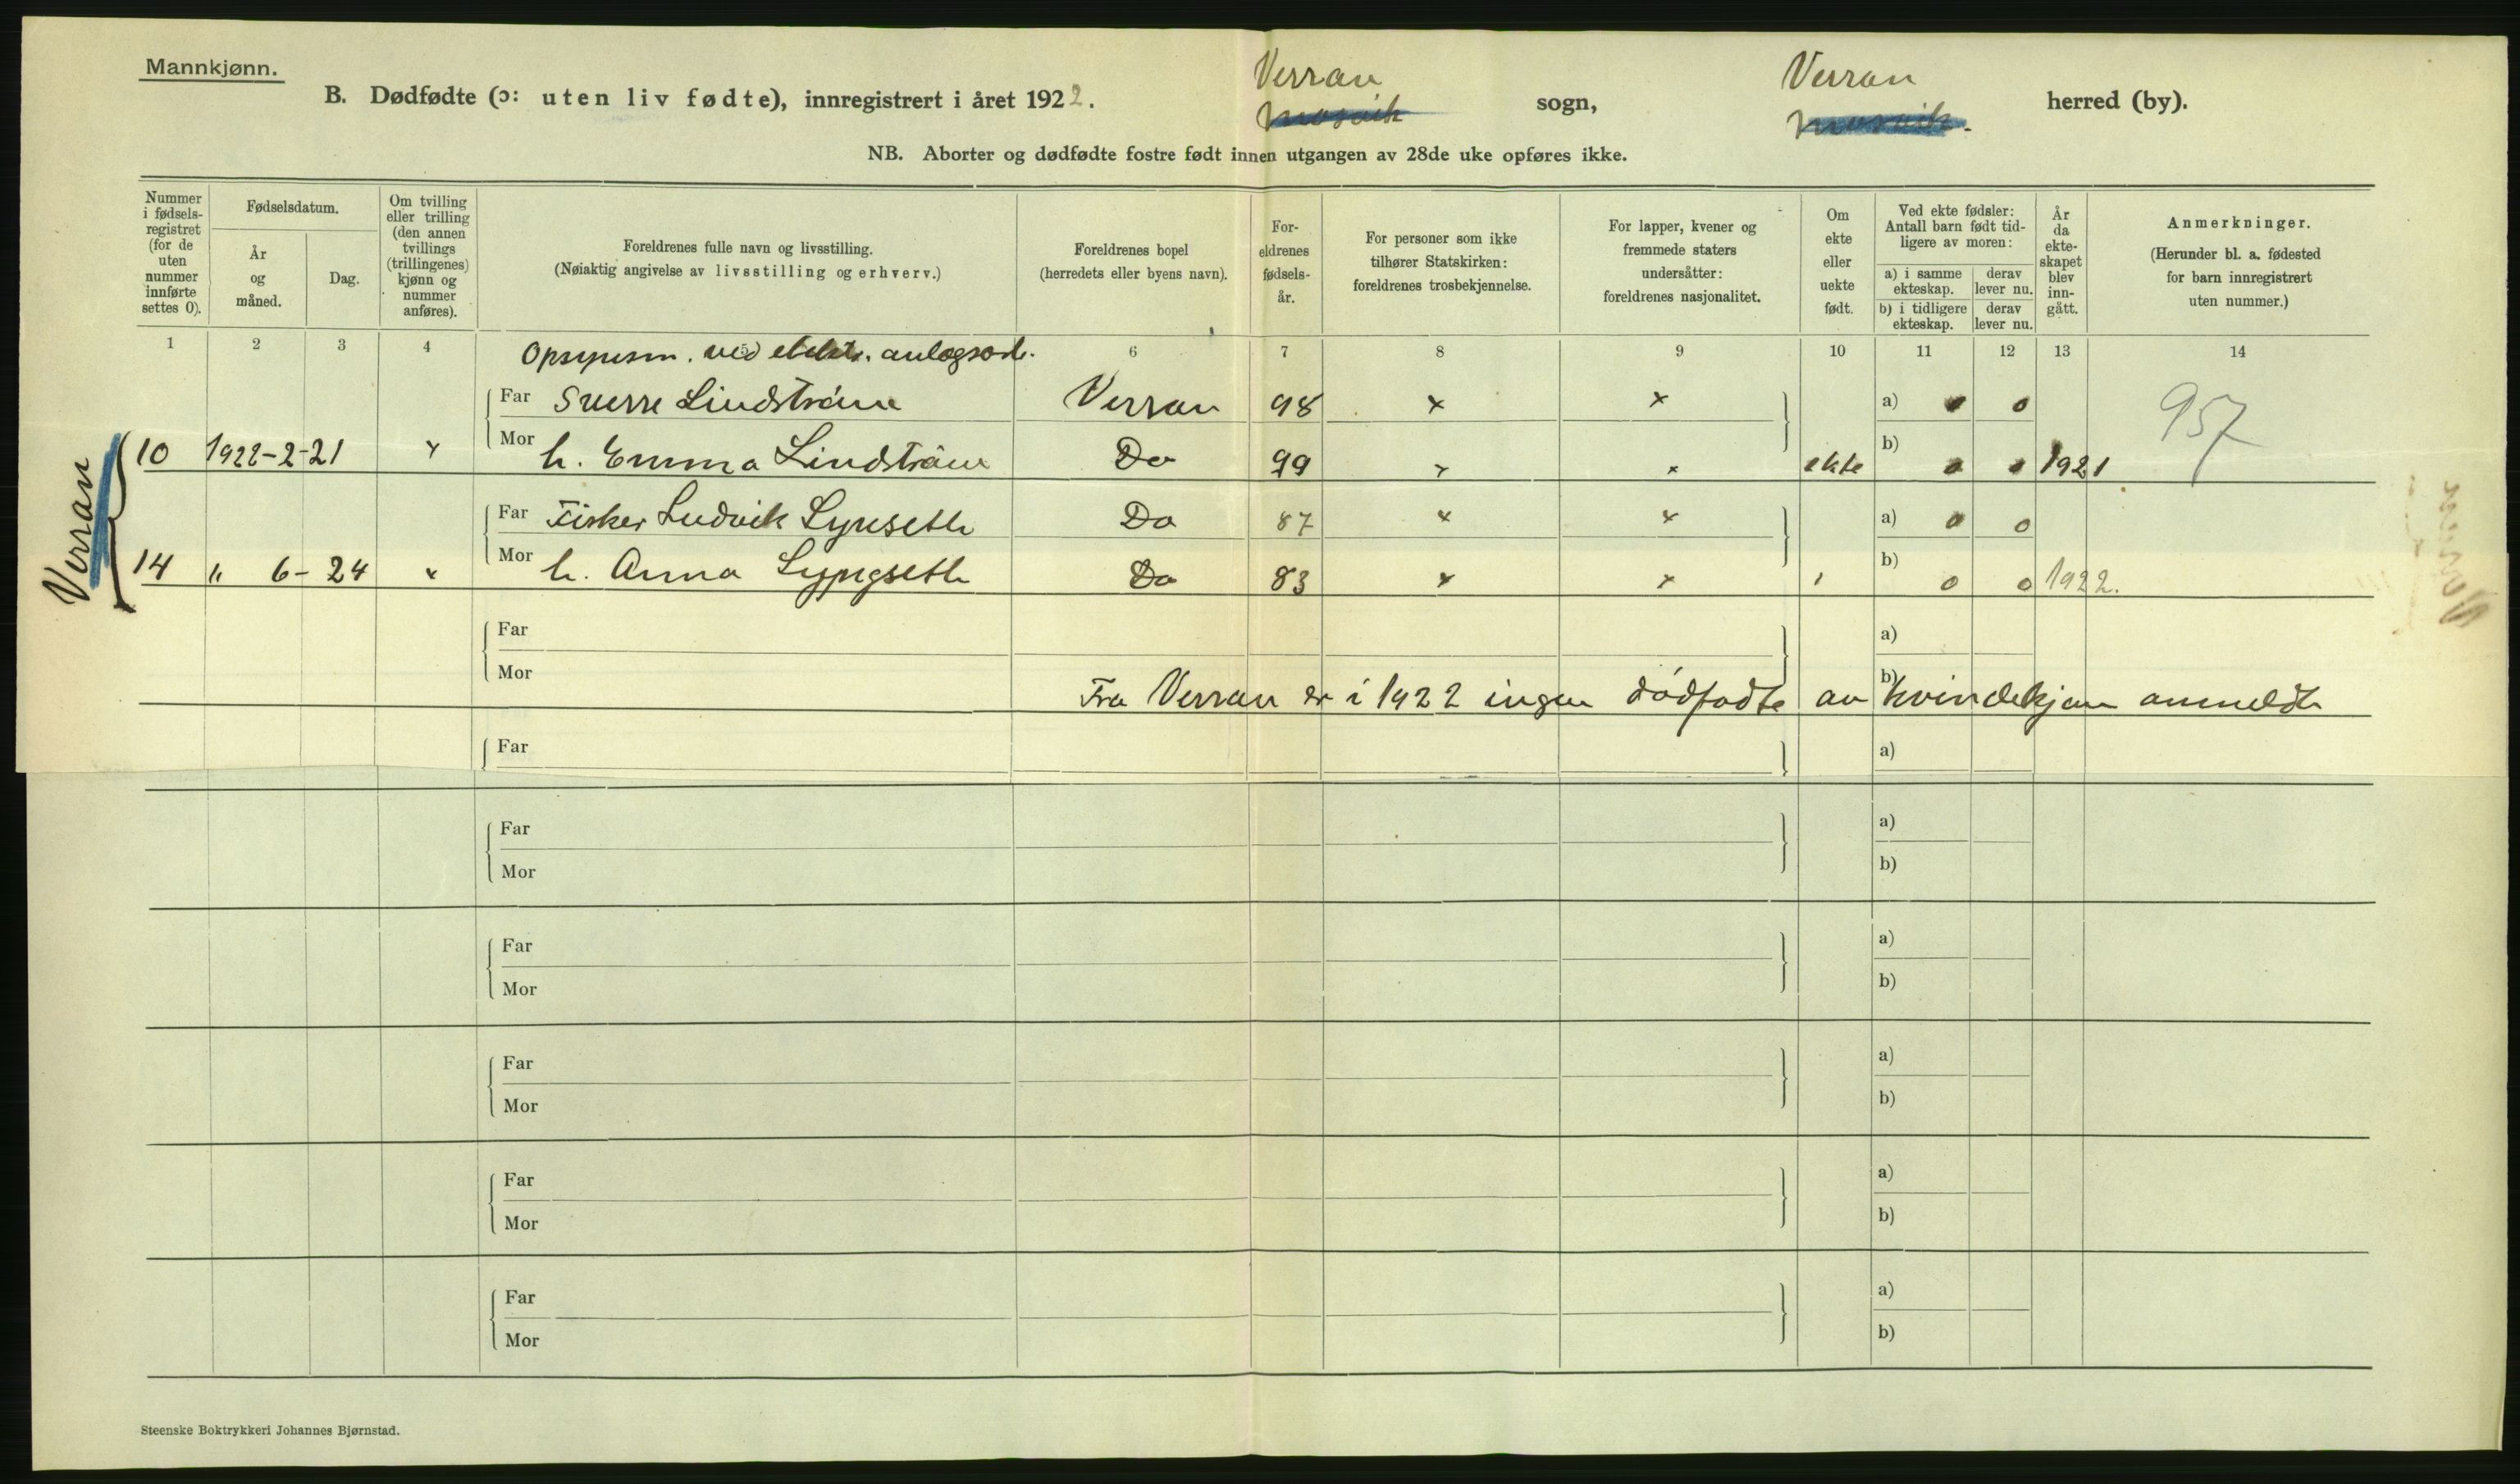 Mannkjønn.
B. Dødfødte (ɔ: uten liv fødte), innregistrert i året 1922.
Verran
Mosvik
sogn,
Verran
Mosvik.
herred (by).
NB. Aborter og dødfødte fostre født innen utgangen av 28de uke opføres ikke.
Nummer i fødsels-registret (for de uten nummer innførte settes 0).
Fødselsdatum.
År og måned.
Dag.
Om tvilling eller trilling (den annen tvillings (trillingenes) kjønn og nummer anføres).
Foreldrenes fulle navn og livsstilling.
(Nøiaktig angivelse av livsstilling og erhverv.)
Foreldrenes bopel
(herredets eller byens navn).
For-eldrenes fødsels-år.
For personer som ikke tilhører Statskirken: foreldrenes trosbekjennelse.
For lapper, kvener og fremmede staters undersåtter: foreldrenes nasjonalitet.
Om ekte eller uekte født.
Ved ekte fødsler: Antall barn født tid-ligere av moren:
a) i samme ekteskap.
derav lever nu.
b) i tidligere ekteskap.
derav lever nu.
År da ekte-skapet blev inn-gått.
Anmerkninger.
(Herunder bl. a. fødested for barn innregistrert uten nummer.)
1 2 3 4 6 7 8 9 10 11 12 13 14
Opsynsm. ved elektr.
Far Sverre Lindstrøm Verran 98 x x a) 0 0 957
10 1922-2-21 x Mor h. Emma Lindstrøm Do 99 x x ekte b) 0 0 1921
Far Fisker Ludvik Lynseth Do 87 x x a) 0 0
14 " 6- 24 x Mor h. Anna Lyngseth Do 83 x x ' b) 0 0 1922.
Verran
Far a)
Mor b)
Fra Verran er i 1922 ingen dødfødte av kvindekjøn anmeldt
Far a)
Far a)
Mor b)
Far a)
Mor b)
Far a)
Mor b)
Far a)
Mor b)
Far a)
Mor b)
Steenske Boktrykkeri Johannes Bjørnstad.